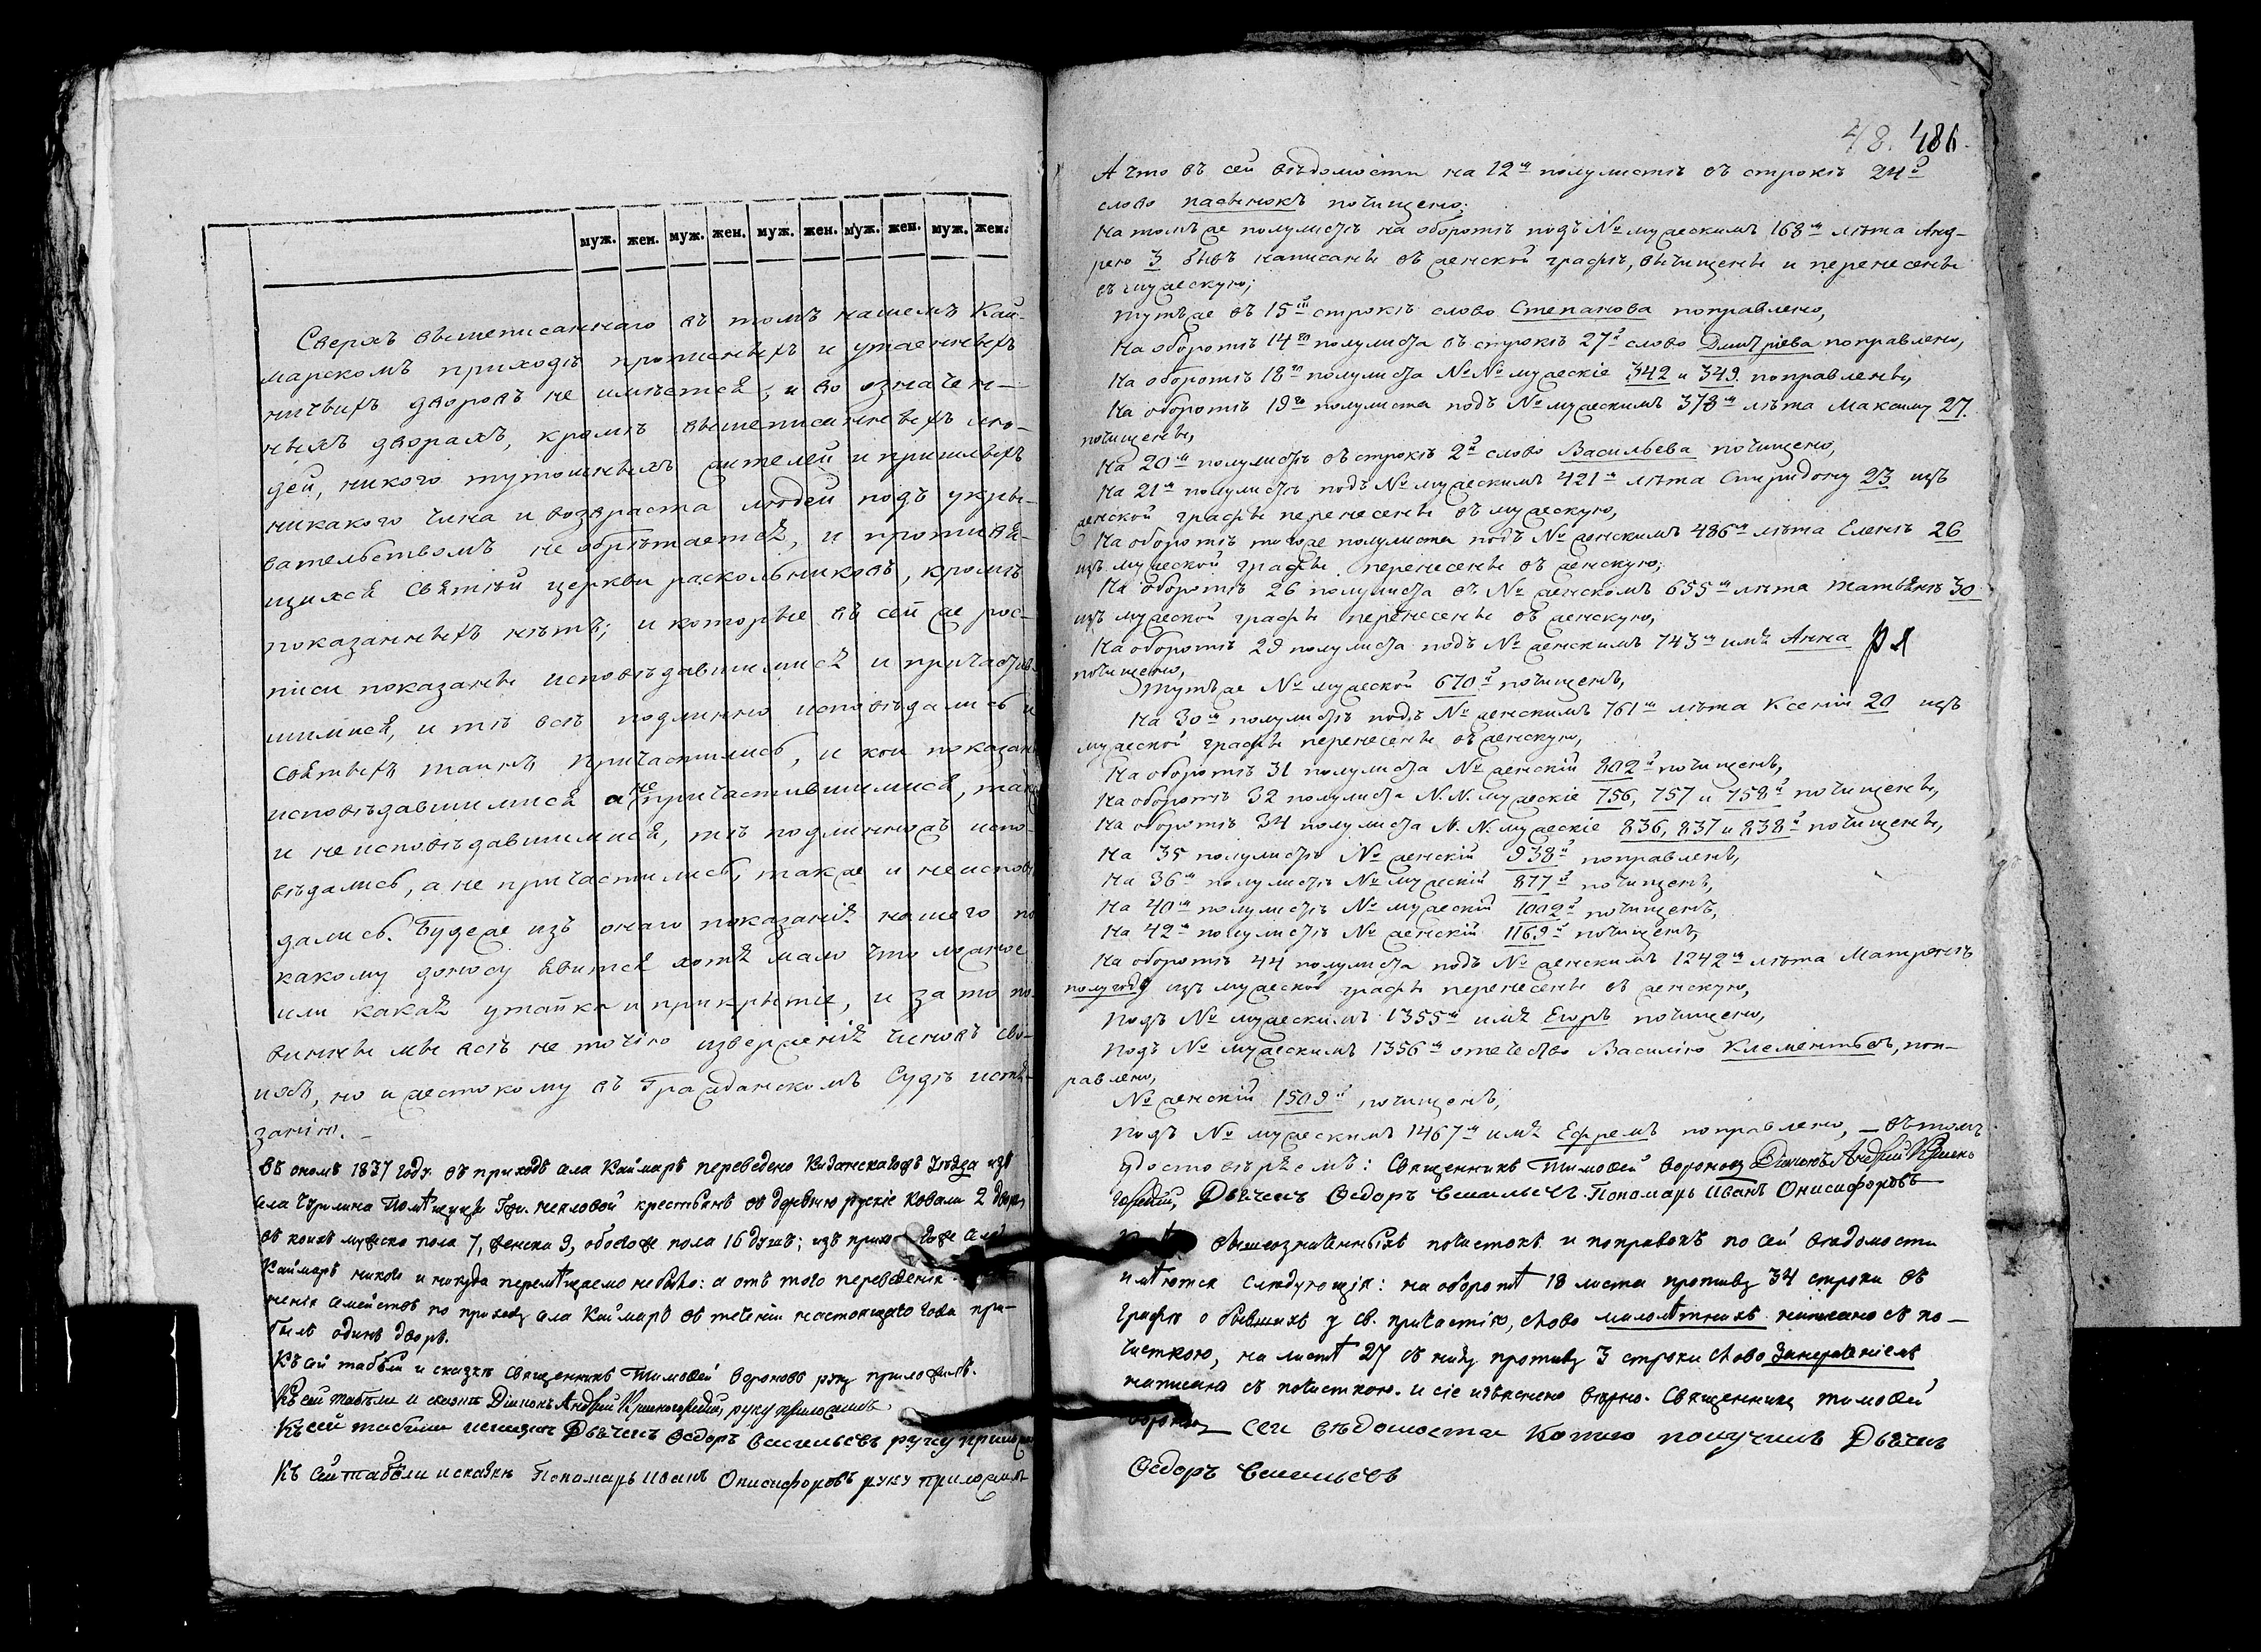 муж. жен. муж. жен. муж. жен. муж. жен. муж. жен.
Сверхъ вышеписаннаго въ томъ нашемъ Кай-
марскомъ приходѣ прописныхъ и утаенныхъ
ничьихъ дворовъ не имѣется; и во означен-
ныхъ дворахъ, кромѣ вышеписанныхъ лю-
дей, никого тутошныхъ жителей и пришлыхъ
никакого чина и возвраста людей подъ укры-
вательствомъ не обрѣтается, и противя-
щихся святѣй церкви раскольниковъ, кромѣ
показанныхъ нѣтъ; и которые въ сей же рос-
писи показаны исповѣдавшимися и причастив-
шимися, и тѣ всѣ подлинно исповѣдались и
святыхъ таинъ причастились, и кои показаны
исповѣдавшимися а не причастившимися, также
и не исповѣдавшимися, тѣ подлинножъ испо-
вѣдались, а не причастились, также и не исповѣ
дались. Будеже изъ онаго показанія нашего по
какому доносу явится хотя мало что ложное
или какая утайка и прикрытіе, и за то по-
винны мы всѣ не точію изверженія чиновъ сво-
ихъ, но и жестокому въ Гражданскомъ Судѣ истя-
занію. —
Въ ономъ 1837 году въ приходъ села Каймаръ переведено Казанскагожъ Уѣзда изъ
села Чурилина Помѣщицы Гжи. Нееловой крестьянъ въ деревню рускіе Ковали 2 двора,
въ коихъ мужеска пола 7, женска 9, обоегоже пола 16 душъ; изъ прихода же села
Каймаръ никого и никуда перемѣщаемо небыло: а отъ того переведенія
ненія семействъ по приходу села Каймаръ въ теченіи настоящаго года при-
былъ одинъ дворъ.
Къ сей табели и сказкѣ Священникъ Тимоѳей Вороновъ руку приложилъ.
Къ сей табели и сказкѣ Діаконъ Андрей руку приложилъ
Къ сей табели и сказкѣ Дьячекъ Ѳедоръ Васильевъ руку приложилъ
Къ сей табели и сказкѣ Пономарь Иванъ Онисифоровъ руку приложилъ
48. 486.
А что въ сей вѣдомости на 12м полулистѣ въ строкѣ 24й
слово пасынокъ почищено;
На томъ же полулистѣ на оборотѣ подъ № мужескимъ 168м лѣта Анд-
рею 3 бывъ написаны въ женской графѣ, вычищены и перенесены
въ мужескую;
Тутъ же въ 15й строкѣ слово Степанова поправлено,
На оборотѣ 14го полулиста въ строкѣ 27й слово Дмитріева поправлено,
На оборотѣ 18го полулиста №№ мужескіе 342 и 349. поправлены,
На оборотѣ 19го полулиста подъ № мужескимъ 378м лѣта Максиму 27.
почищены,
На 20м полулистѣ въ строкѣ 2й слово Васильева почищено,
На 21м полулистѣ подъ № мужескимъ 421м лѣта Спиридону 23 изъ
женской графы перенесены въ мужескую,
На оборотѣ тогоже полулиста подъ № женскимъ 486м лѣта Еленѣ 26
изъ мужеской графы перенесены въ женскую;
На оборотѣ 26 полулиста въ № женскомъ 655м лѣта Татьянѣ 30
изъ мужеской графы перенесены въ женскую,
На оборотѣ 29 полулиста подъ № женскимъ 743м имя Анна
почищено,
Тутъ же № мужеской 670й почищенъ,
На 30м полулистѣ подъ № женскимъ 761м лѣта Ксеніи 20 изъ
мужеской графы перенесены въ женскую,
На оборотѣ 31 полулиста № женскій 802й почищенъ,
На оборотѣ 32 полулиста N.N. мужескіе 756, 757 и 758й почищены,
На оборотѣ 34 полулиста N.N. мужескіе 836, 837 и 838й почищены,
На 35 полулистѣ № женскій 938й поправленъ,
На 36м полулистѣ № мужескій 877й почищенъ,
На 40м полулистѣ № мужескій 1002й почищенъ,
На 42м полулистѣ № женскій 1169й почищенъ,
На оборотѣ 44 полулиста подъ № женскимъ 1242м лѣта Матренѣ
полугода изъ мужеской графы перенесены въ женскую,
Подъ № мужескимъ 1355м имя Егоръ почищено,
Подъ № мужескимъ 1356м отечество Василію Клементьевъ, поп-
равлено,
№ женскій 1509й почищенъ,
Подъ № мужескимъ 1467м имя Ефремъ поправлено, — Въ томъ
удостовѣряемъ: Священникъ Тимоѳей Вороновъ Діаконъ Андрей
Дьячекъ Ѳедоръ Васильевъ Пономарь Иванъ Онисифоровъ
вышеозначенныхъ почистокъ и поправокъ по сей вѣдомости
имѣются слѣдующія: на оборотѣ 18 листа противу 34 строки въ
графѣ о бывшихъ у св. причастія, слово малолѣтнихъ написано съ по-
чисткою, на листѣ 27 въ низу противу 3 строки слово
написано съ почисткою. и сіе изъяснено вѣрно. Священникъ Тимоѳей
Вороновъ — Сей вѣдомости копію получилъ Дьячекъ
Ѳедоръ Васильевъ